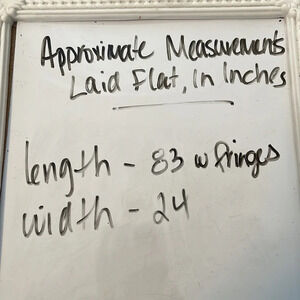 Approximate Measurements
Laid Flat, In Inches
length - 83 w fringes
width - 24